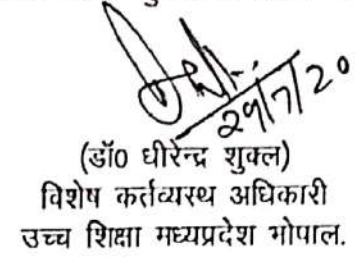 29/7/20
(डॉ0 धीरेन्द्र शुक्ल)
विशेष कर्तव्यस्थ अधिकारी
उच्च शिक्षा मध्यप्रदेश भोपाल.